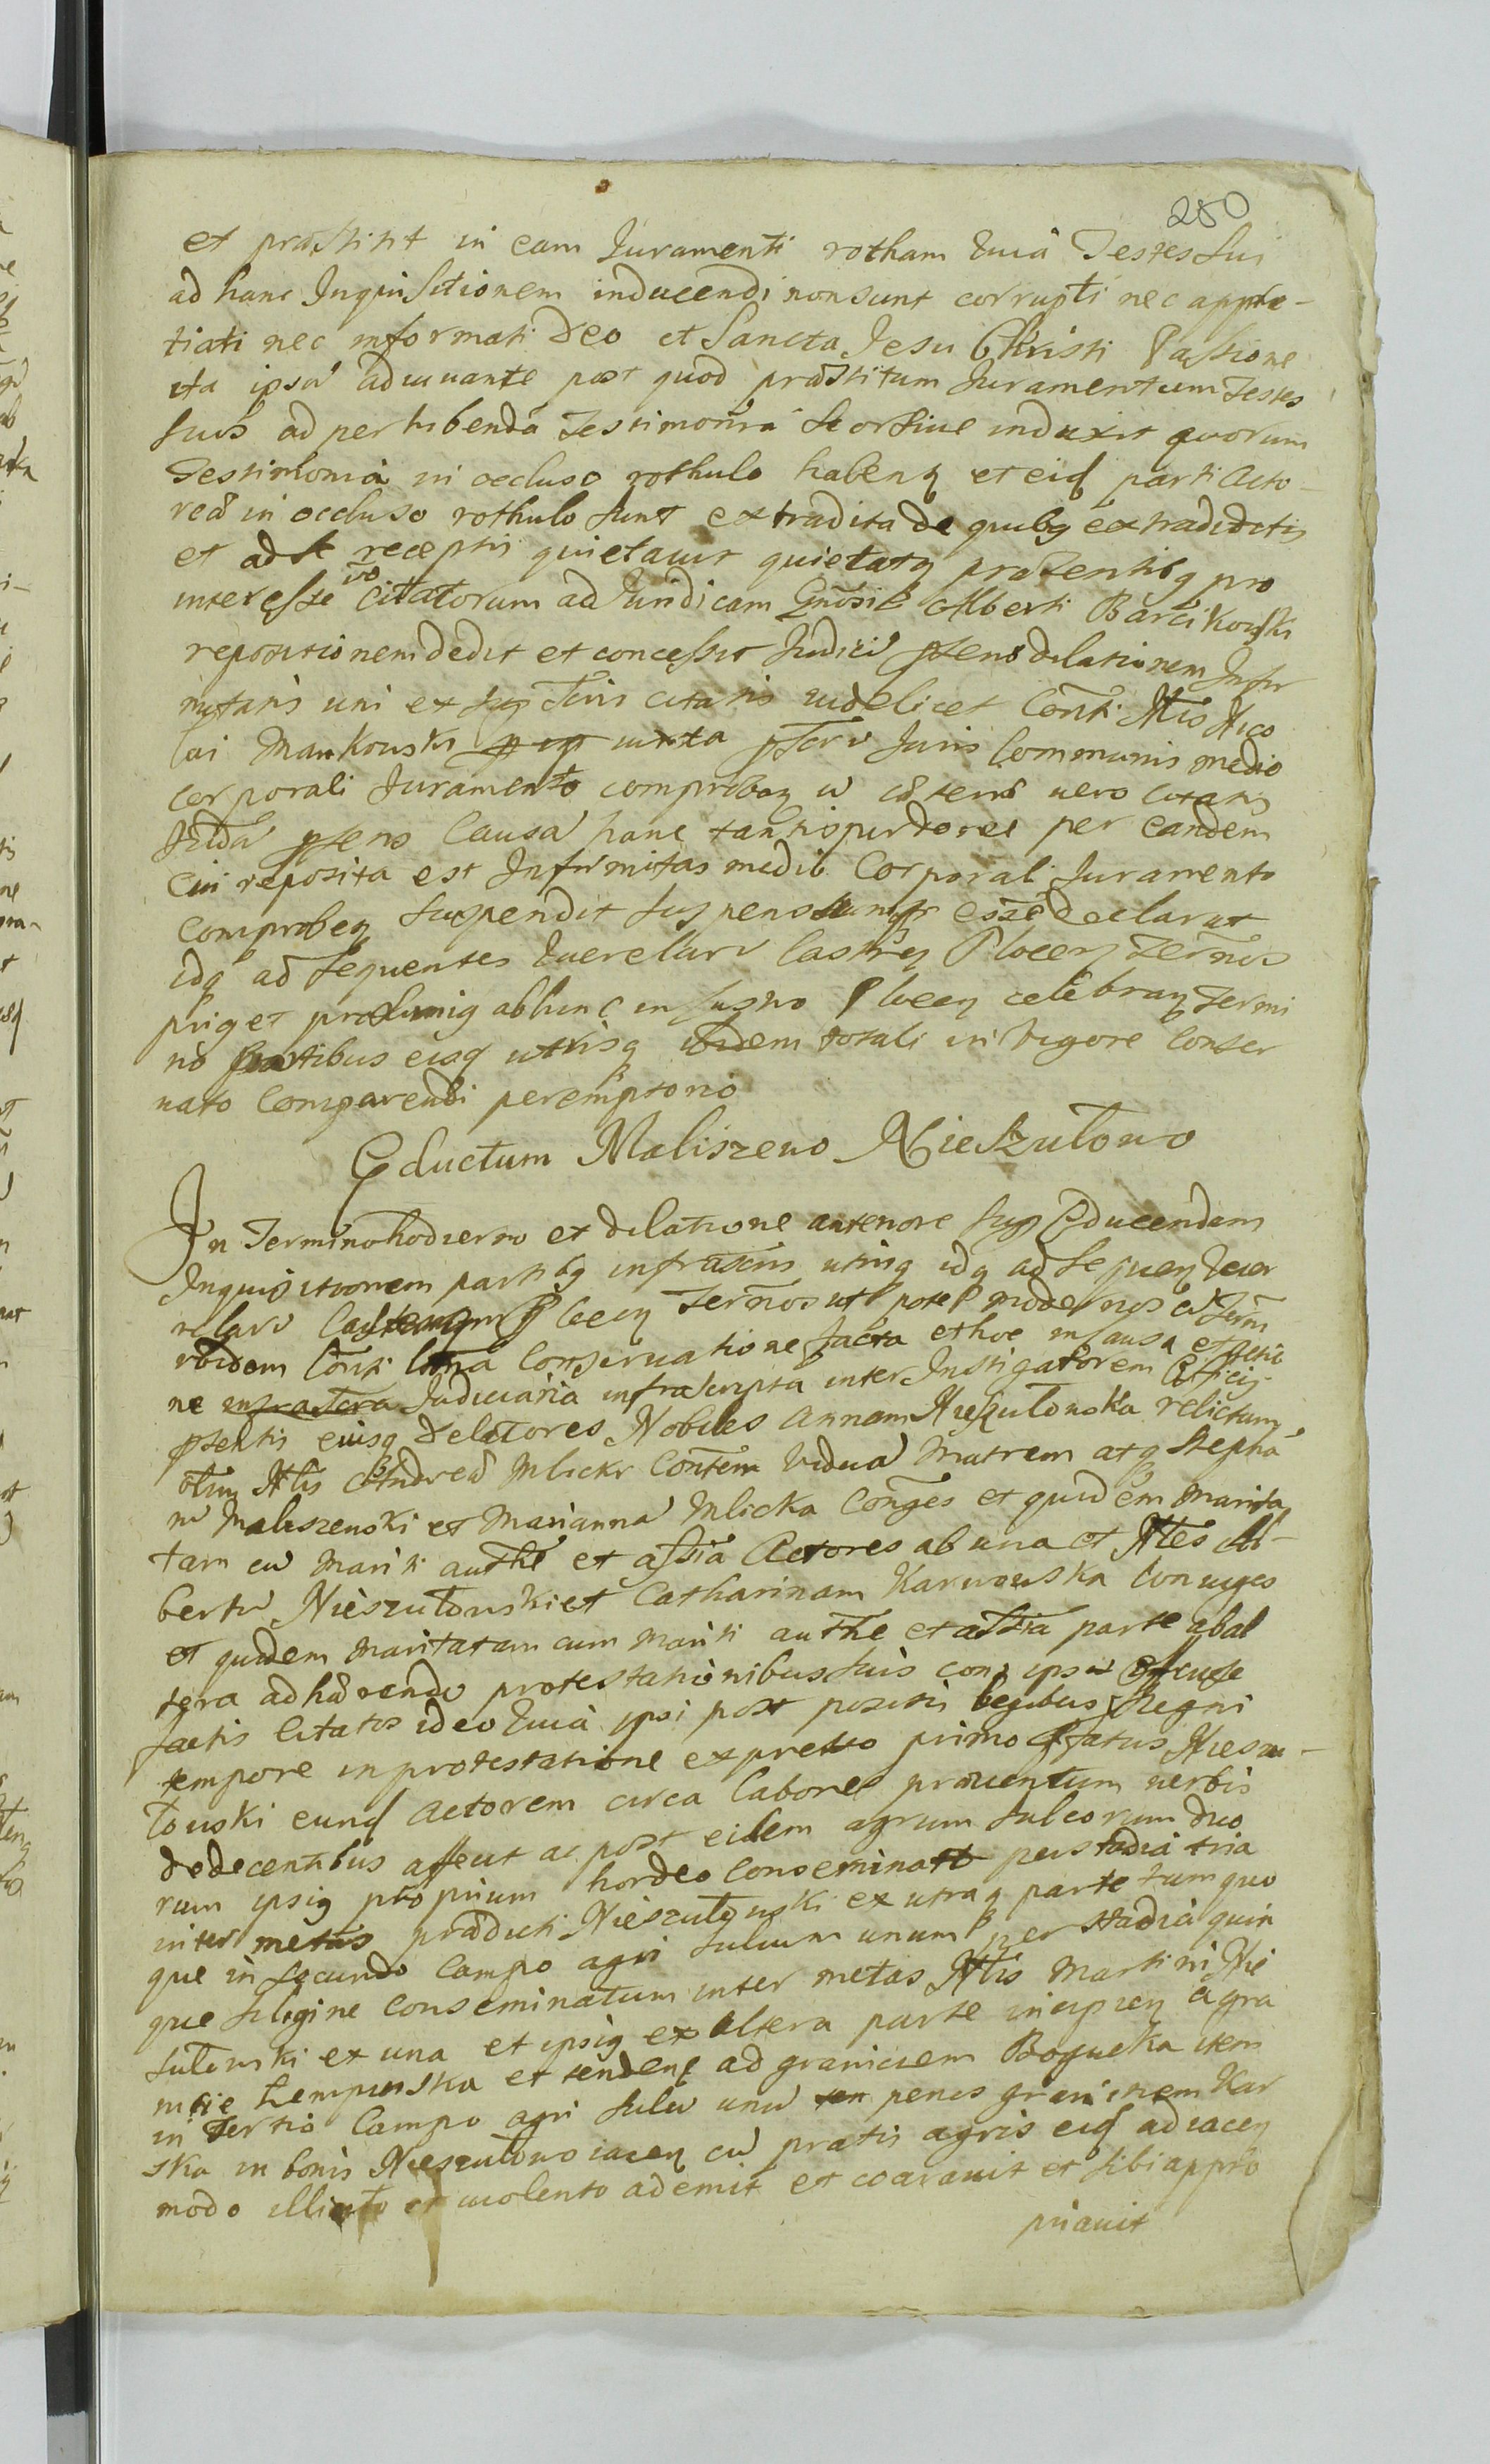 280
et præstitit in eam Juramenti rotham quia Testes sui
ad hanc Inquisitionem inducendi non sunt corrupti nec appre-
tiati nec informati Deo et Sancta Jesu Christi Passione
ita ipsu adiuuante post quod præstitum Juramentum Testes
suos ad perhibenda Testimonia seorsiue induxit quorum
Testimonia in occluso rothulo haben et eid parti Acto-
reæ in occluso rothulo sunt extradita de quibq extraditis
et ad se receptis quietauit quietatq præsentibq pro
interesse vo Citatorum ad Juridicam Gnosi Alberti Barcikowski
repositionem dedit et concessit Judiciu pns dilationem Infir
mitatis uni ex sup Tiris citatis uidelicet Conti Nlis Nico
lai Mankowski iuxta pscr Juris Communis medio
corporali Juramento comproban u cæteris uero citatis
Juda pns Causa hanc tantisper donec per eandem
cui reposita est Infirmitas medio Corporali Juramento
comproben suspendit suspensamq esse declarat
idq ad sequentes Querelaru Castren Plocen Termos
prig et proximig abhinc in Castro Plocen celebran Termi
no partibus eisq utrisq ibidem totali in vigore Conser
uato Comparendi peremptorio
Eductum Maliszewo Nieszułowo
In Termino hodierno ex dilatione anteriore sup Educendam
Inquisitionem partibq infrascris utrisq idq ad sequen Quer
relaru Castren Plocen Termos ut pote modernos cu Term
ibidem Conti Conseruatione facta et hoc in causa et actio
ne Judiciaria infrascripta inter Instigatorem Officij
psentis eiusq delatores Nobiles Annam Nieszułowska relictam
olim Nlis Andreæ Mlicki Contem Vidua Matrem atq Stepha
nu Maliszewski et Marianna Mlicka Conges et quidem marita
tam cu Mariti authe et assia Actores ab una et Nles Al-
bertu Nieszułowski et Catharinam Karwowska Coniuges
et quidem Maritatam cum Mariti authe et assia parte ab al
tera adhærendo protestationibus suis con ipsu Officiose
factis Citatos ideo Quia ipsi post positis legibus Regni
tempore in protestatione expresso primo citatus Nieszu-
łowski eund Actorem circa labores prouentum uerbis
dedecentibus affecit ac post eidem agrum sulcorum duo
rum ipsiq proprium hordeo conseminato per stadia tria
inter metas præducti Nieszułowski ex utraq parte tum quo
que in secundo Campo agri sulcum unum per stadia quin
que siligine conseminatum inter metas Nlis Martini Nie
sułowski ex una et ipsiq ex altera parte incipien a gra
nicie Łempinska et tenden ad graniciem Bogucka item
in Tertio Campo agri sulcu unu penes graniciem Kar
ska in bonis Nieszułowo iacen cu pratis agris eid adiacen
modo illicito et uiolento ademit et coarauit et sibi appro
priauit